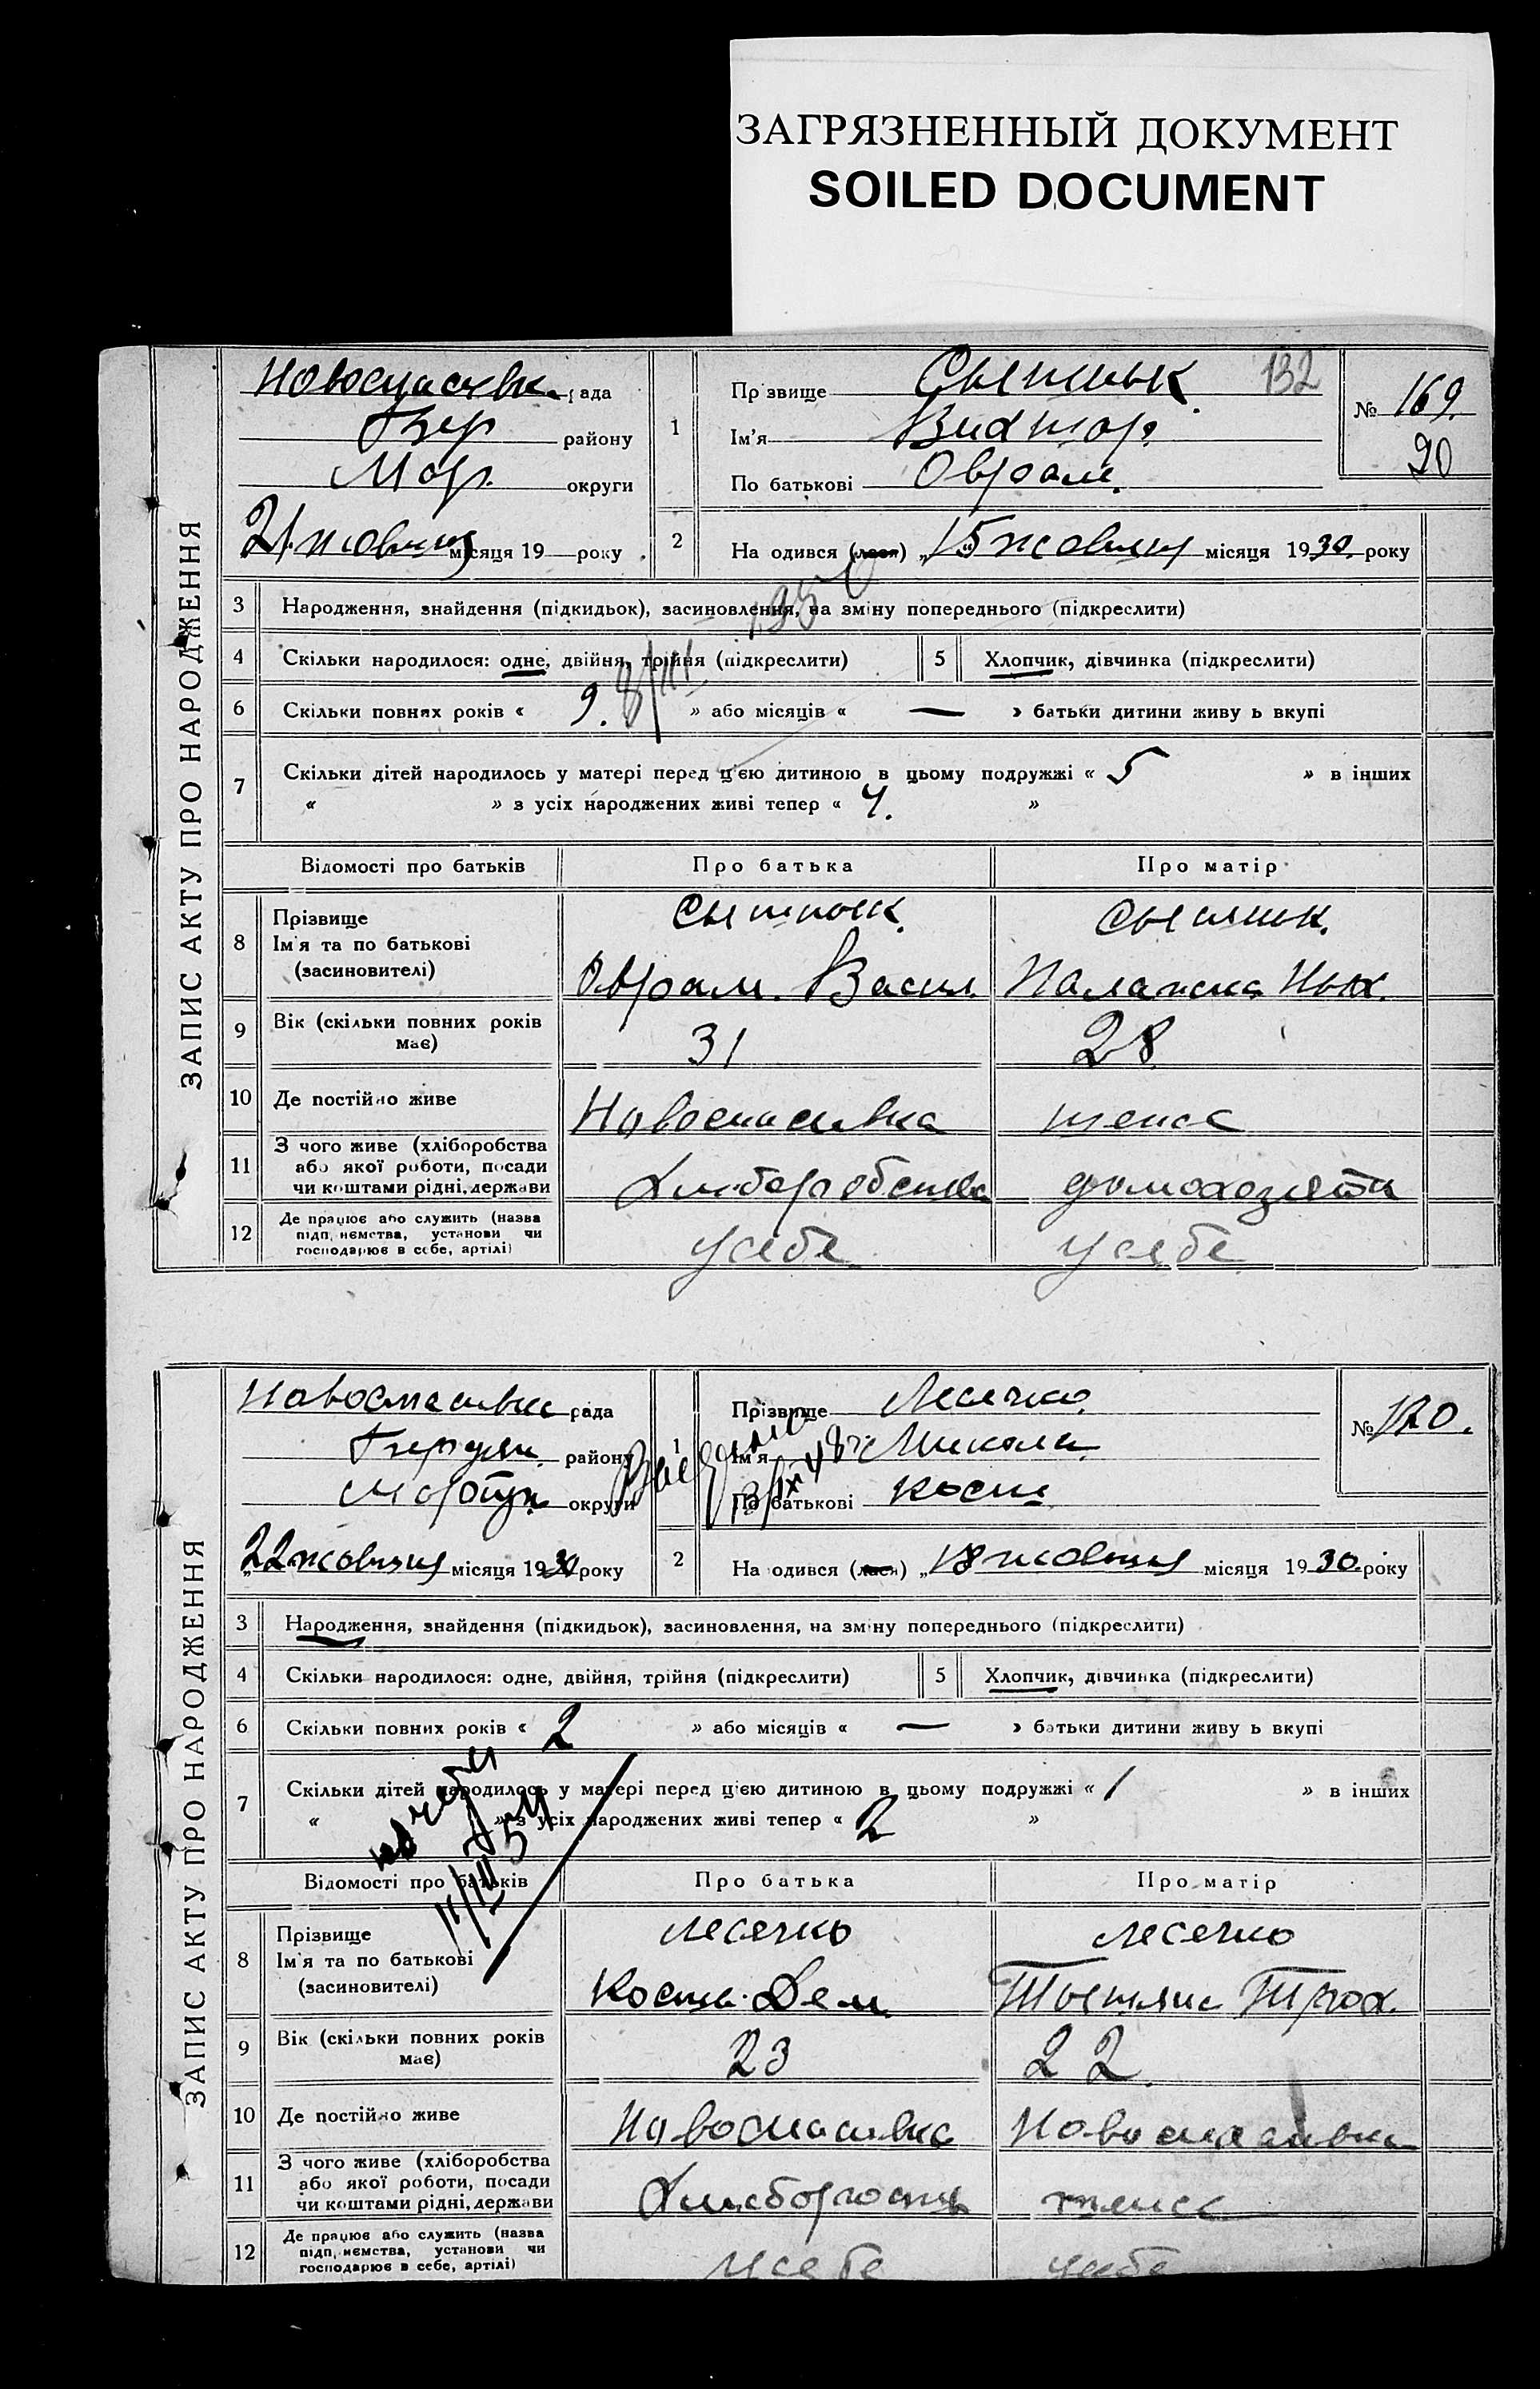 ЗАГРЯЗНЕННЫЙ ДОКУМЕНТ
SOILED DOCUMENT
ЗАПИС АКТУ ПРО НАРОДЖЕННЯ
Новоспасівка рада
Бер району
Мар. округи
21 жовтня місяця 19 року
1
Прізвище Сытнык. 132
Ім'я Виктор.
По батькові Оврам.
№ 169.
20
2 На одився (лася) „15 жовтня місяця 1930. року
1950
3 Народження, знайдення (підкидьок), засиновлення, на зміну попереднього (підкреслити)
4 Скільки народилося: одне, двійня, трійня (підкреслити) 5 Хлопчик, дівчинка (підкреслити)
6 Скільки повних років « 9. » або місяців « — » батьки дитини живу ь вкупі
8/III
7 Скільки дітей народилось у матері перед цією дитиною в цьому подружжі « 5 » в інших
« » з усіх народжених живі тепер « 4. »
Відомості про батьків Про батька Про матір
8 Прізвище Сытнык. Сытнык.
Ім'я та по батькові
(засиновителі) Оврам. Васил. Палажка Ных.
9 Вік (скільки повних років має) 31 28
10 Де постійно живе Новоспасивка
11 З чого живе (хліборобства
або якої роботи, посади
чи коштами рідні, держави Хлиборобства домохозяйка
12 Де працює або служить (назва
підприємства, установи чи
господарює в себе, артілі) У себе У себе
ЗАПИС АКТУ ПРО НАРОДЖЕННЯ
Новоспасивка рада
Бердян. району
Мариуп. округи
22 жовтня місяця 1930 року
1
Прізвище Лесечко
Ім'я Микола
По батькові Кост
№ 170.
2 На одився (лася) „18 жовтня місяця 1930. року
3 Народження, знайдення (підкидьок), засиновлення, на зміну попереднього (підкреслити)
4 Скільки народилося: одне, двійня, трійня (підкреслити) 5 Хлопчик, дівчинка (підкреслити)
6 Скільки повних років « 2 » або місяців « — » батьки дитини живу ь вкупі
7 Скільки дітей народилось у матері перед цією дитиною в цьому подружжі « 1 » в інших
« » з усіх народжених живі тепер « 2 »
Відомості про батьків Про батька Про матір
8 Прізвище Лесечко Лесечко
Ім'я та по батькові
(засиновителі) Кость Дем. Тытяна Трох.
9 Вік (скільки повних років має) 23 22.
10 Де постійно живе Новоспасивка Новоспасивка
11 З чого живе (хліборобства
або якої роботи, посади
чи коштами рідні, держави
12 Де працює або служить (назва
підприємства, установи чи
господарює в себе, артілі) У себе У себе